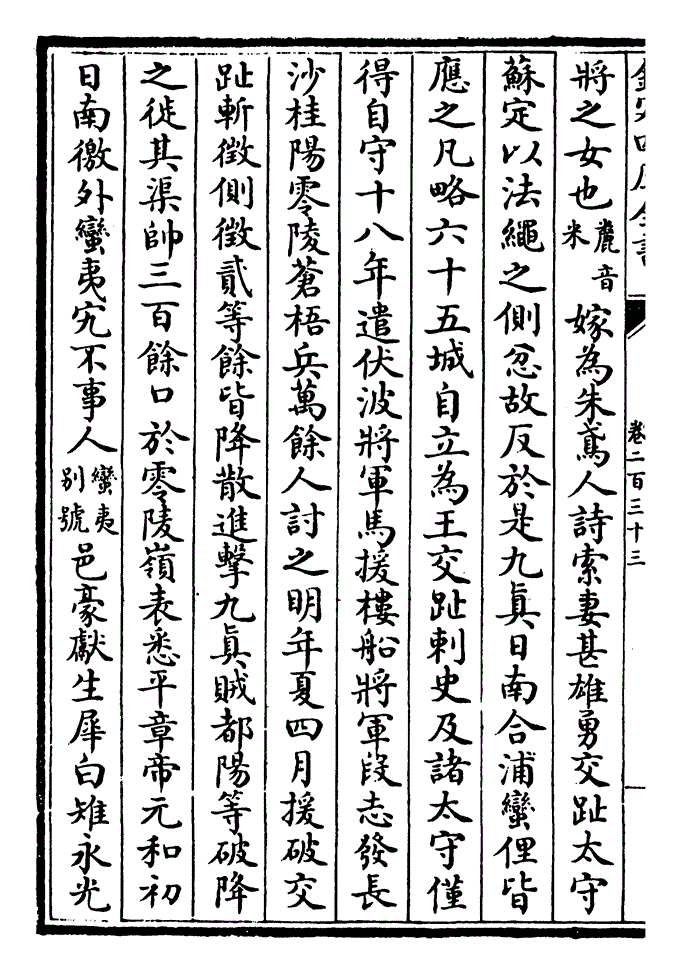 欽定四庫全書
卷二百三十三
將之女也麊音米嫁為朱鳶人詩索妻甚雄勇交趾太守
蘇定以法繩之側忿故反於是九真日南合浦蠻俚皆
應之凡略六十五城自立為王交趾刺史及諸太守僅
得自守十八年遣伏波將軍馬援樓船將軍段志發長
沙桂陽零陵蒼梧兵萬餘人討之明年夏四月援破交
趾斬徵側徵貳等餘皆降散進擊九真賊都陽等破降
之徙其渠帥三百餘口於零陵嶺表悉平章帝元和初
日南徼外蠻夷究不事人蠻夷别號邑豪獻生犀白雉永光